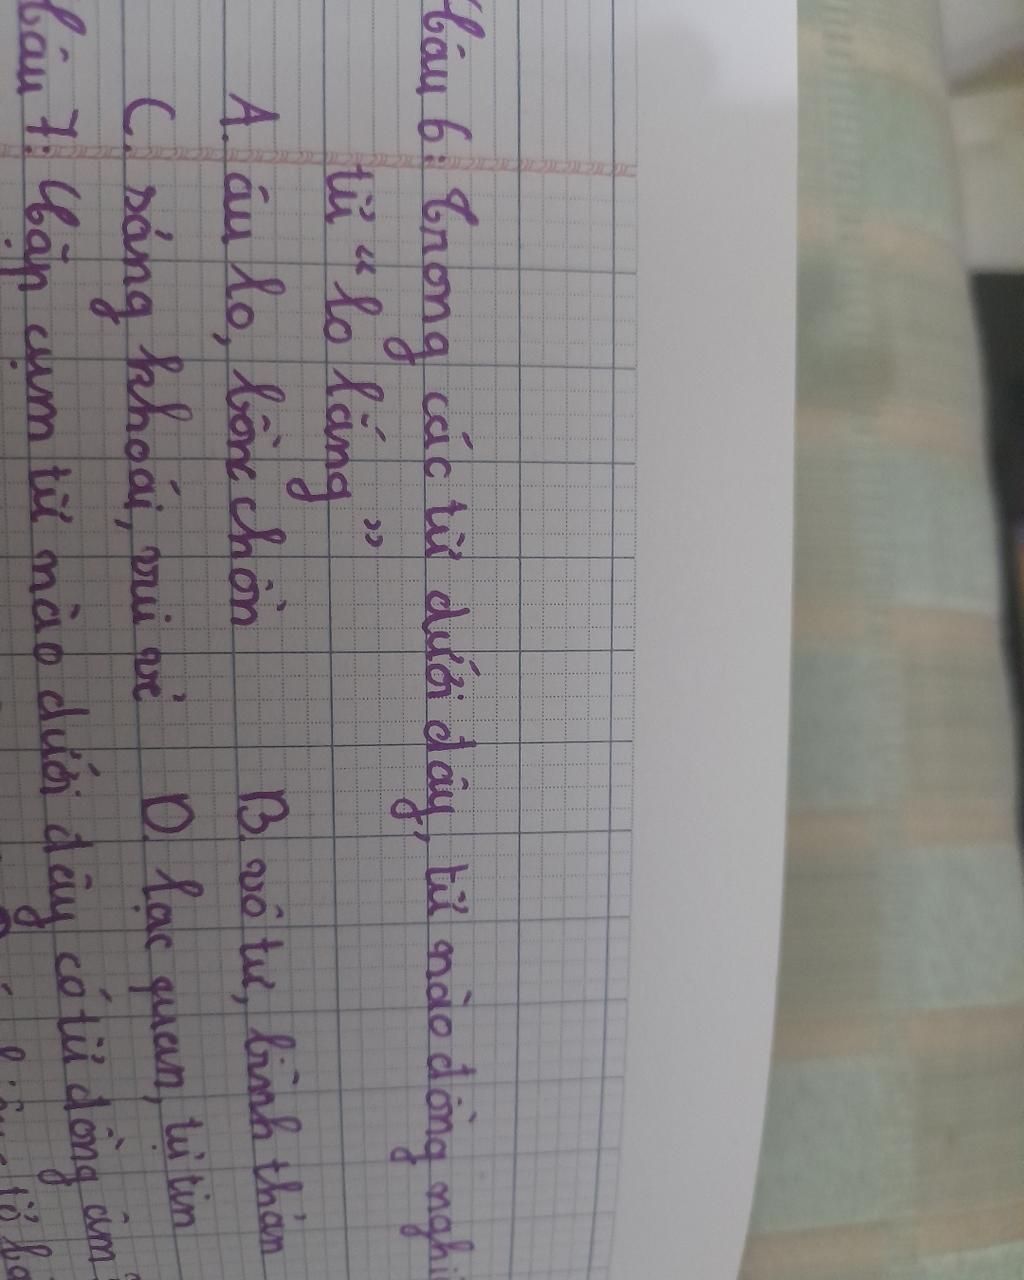 Câu 6: Trong các từ dưới đây, từ nào đồng
từ "lo lắng"
A. âu lo, bồn chồn B. vô tư, bình thản
C. sảng khoái, vui vẻ D. lạc quan, tự tin
Câu 7: Cặp cụm từ nào dưới đây có từ đồng âm